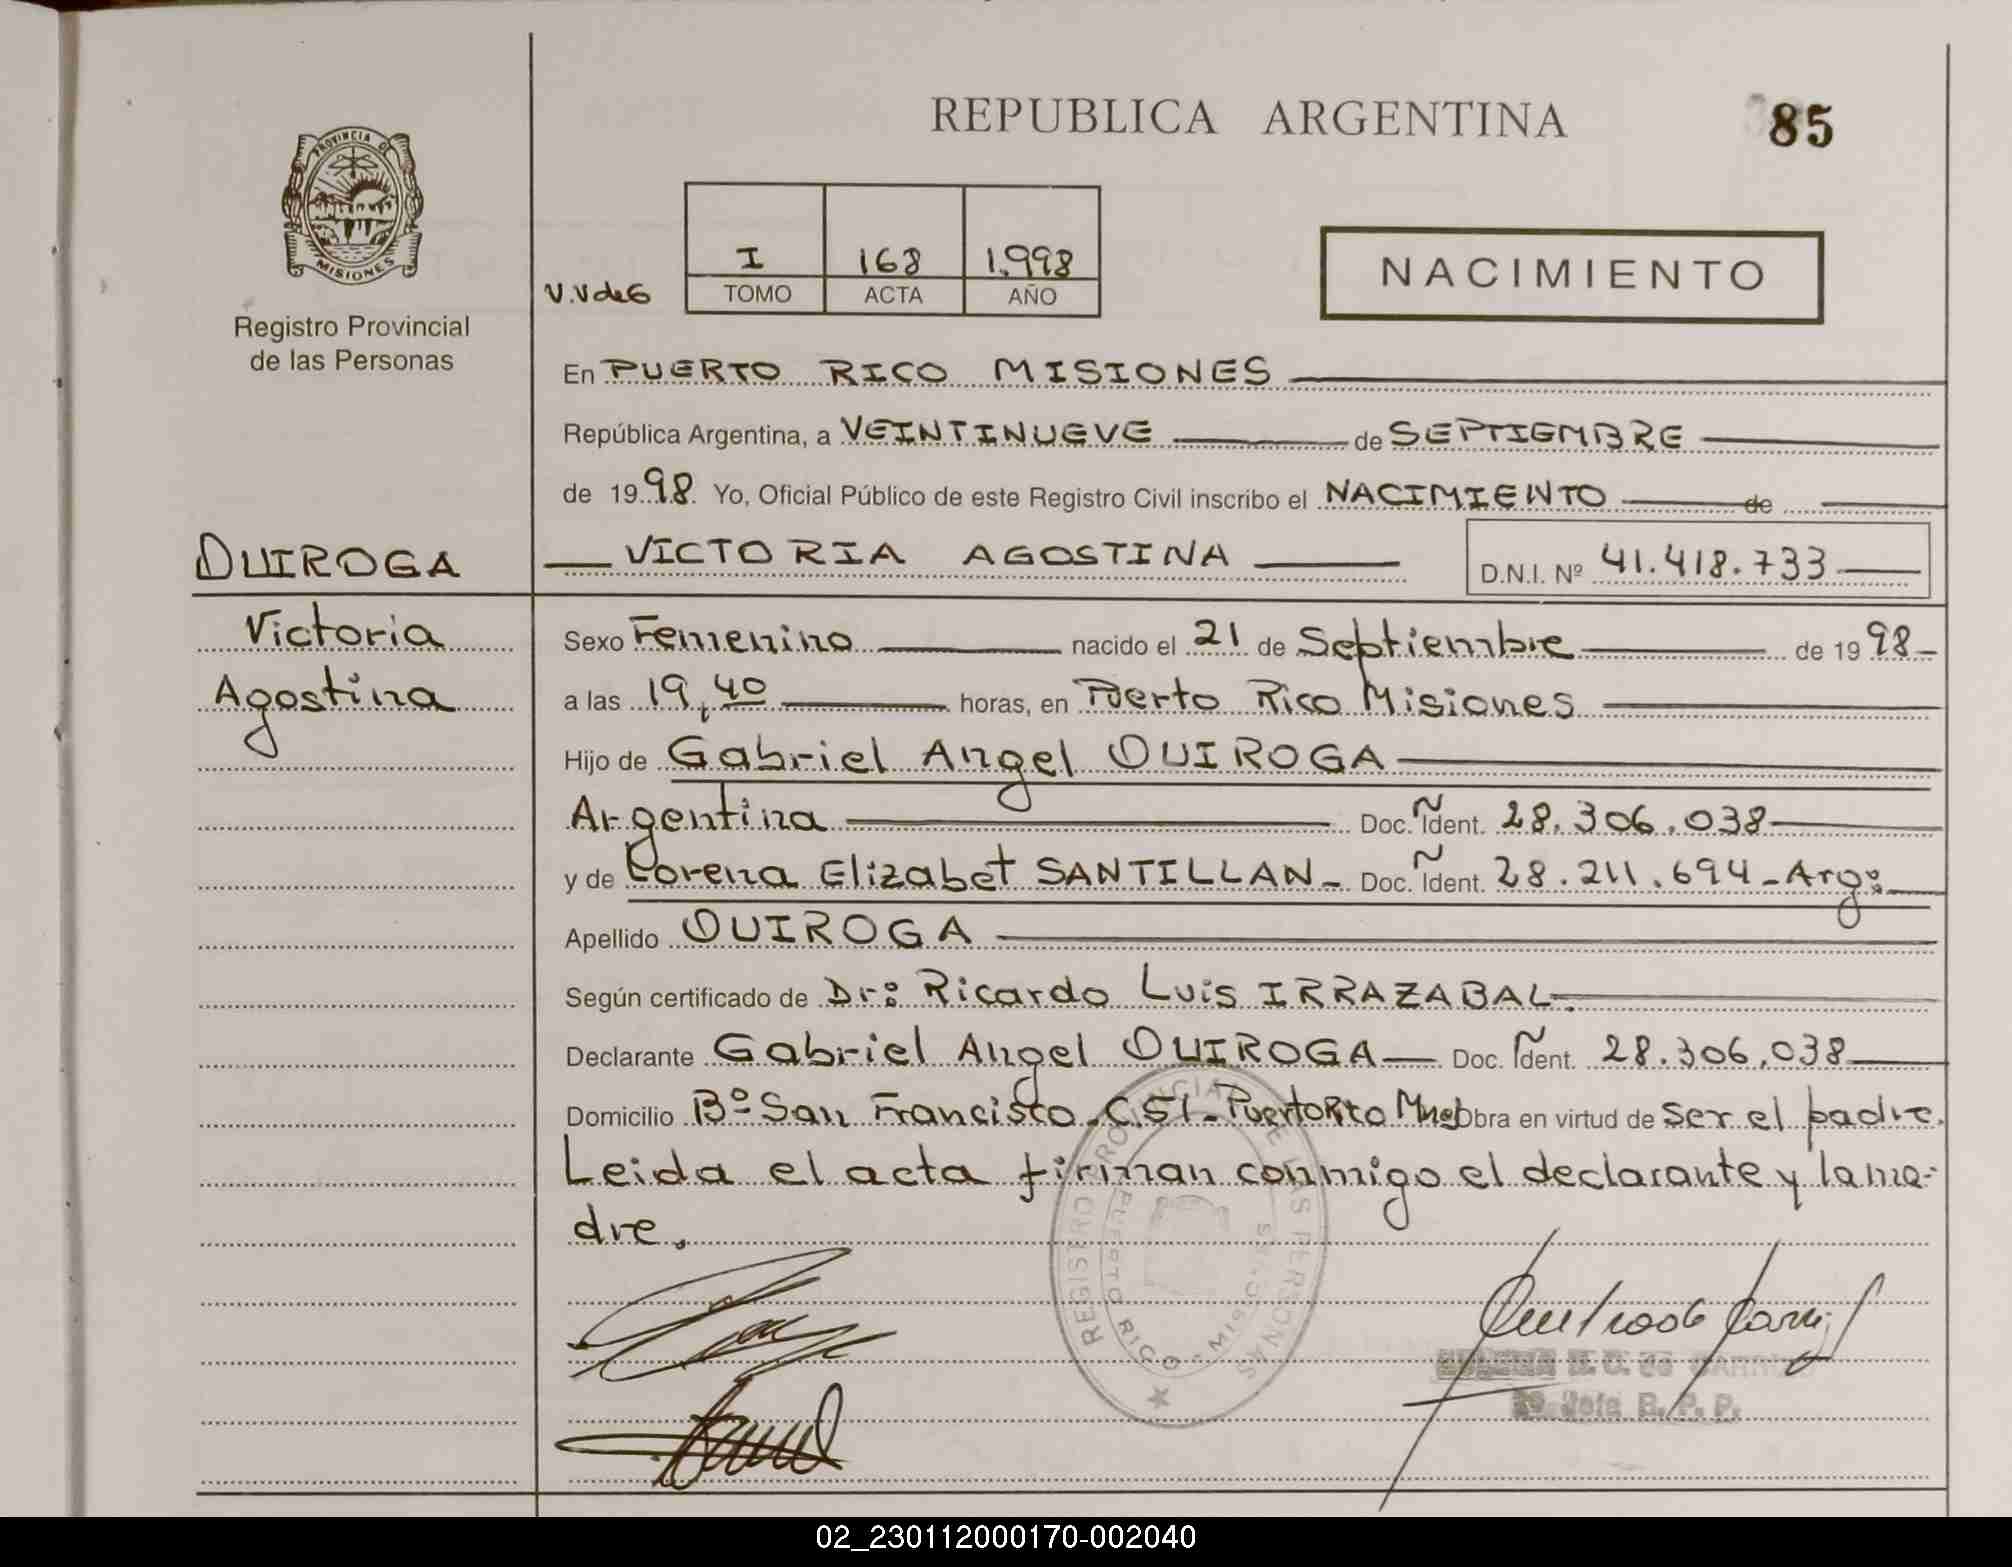 REPUBLICA ARGENTINA
85
PROVINCIA DE
MISIONES
Registro Provincial
de las Personas
V.V de G
I 168 1.998
TOMO ACTA AÑO
NACIMIENTO
En PUERTO RICO MISIONES
República Argentina, a VEINTINUEVE de SEPTIEMBRE
de 1998. Yo, Oficial Público de este Registro Civil inscribo el NACIMIENTO de
QUIROGA
VICTORIA AGOSTINA
D.N.I. Nº 41.418.733
Victoria
Agostina
Sexo Femenino nacido el 21 de Septiembre de 1998
a las 19,40 horas, en Puerto Rico Misiones
Hijo de Gabriel Angel QUIROGA
Argentina Doc. Ident. 28.306.038
y de Lorena Elizabet SANTILLAN - Doc. Ident. 28.211.694 - Arg:
Apellido QUIROGA
Según certificado de Dr: Ricardo Luis IRRAZABAL.
Declarante Gabriel Angel QUIROGA Doc. Ident. 28.306.038
Domicilio Bº San Francisco. C 51 - Puerto Rico Mnes Obra en virtud de ser el padre.
Leida el acta firman conmigo el declarante y la ma-
dre.
REGISTRO PROVINCIAL DE LAS PERSONAS
PUERTO RICO - MISIONES
B. C. de
Jefe R. P. P.
02_230112000170-002040